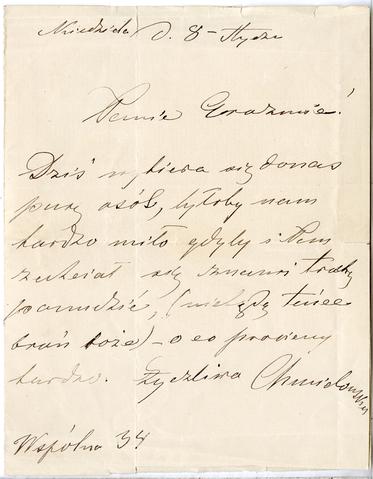 Niedziela d. 8 - Stycz
Panie Erazmie!
Dziś wybiera się do nas
parę osób, byłoby nam
bardzo miło gdyby i Pan
zechciał się z nami trochę
ponudzić, (nie będą tańce
broń Boże) - o co prosimy
bardzo. Życzliwa Chmielowska
Wspólna 34